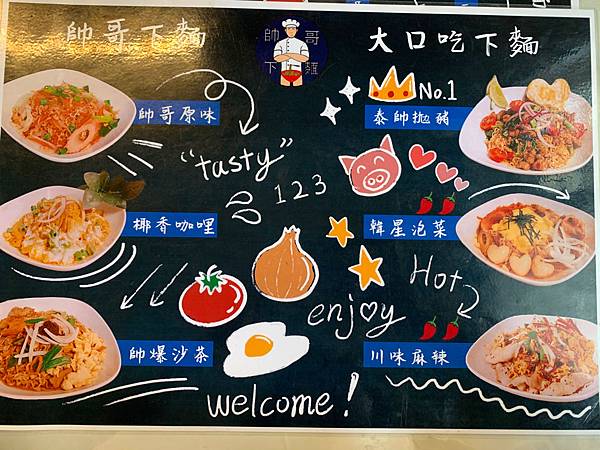 帥哥下麵
帥哥
下麵
大口吃下麵
帥哥原味
No.1
泰帥拋豬
"tasty"
1 2 3
椰香咖哩
韓星泡菜
Hot
enjoy
帥爆沙茶
川味麻辣
welcome!